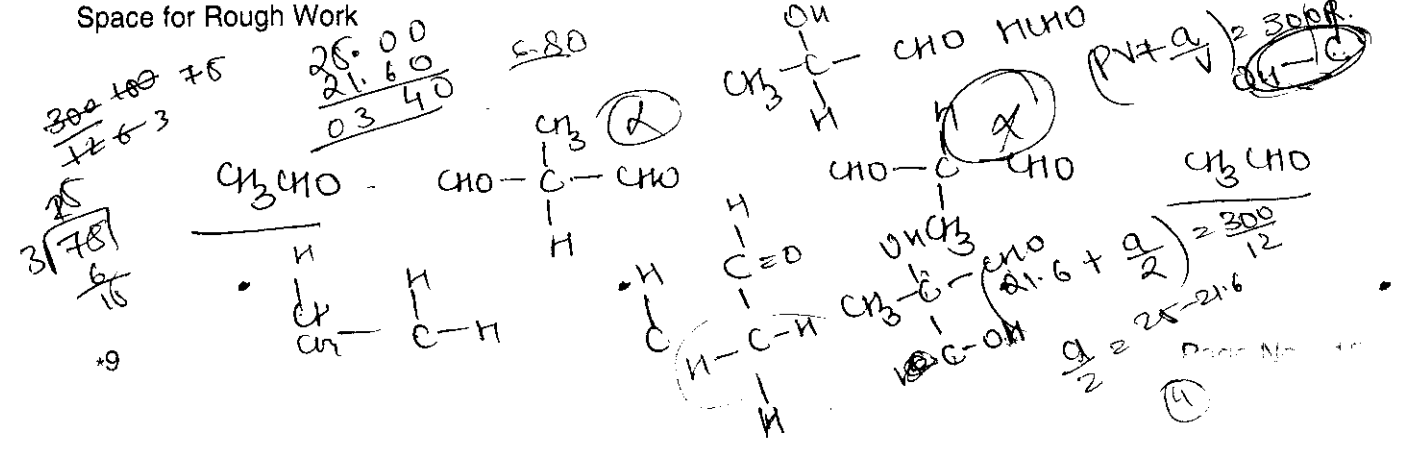 Space for Rough Work
300 100 75
12 6 3
25.00
21.60
03 40
6.80
OH
CH3-C-CHO HCHO
H
(PV+a/V)=300R.
OH-C
CH3CHO
CH3
CHO-C-CHO
H
H
CHO-C-CHO
CH3
CH3CHO
25
3 78
6
15
H
C-H
H
C=O
H-C-H
H
OH
CH3-C-CHO
C-OH
(21.6+a/2)=300/12
a/2=25-21.6
*9
4